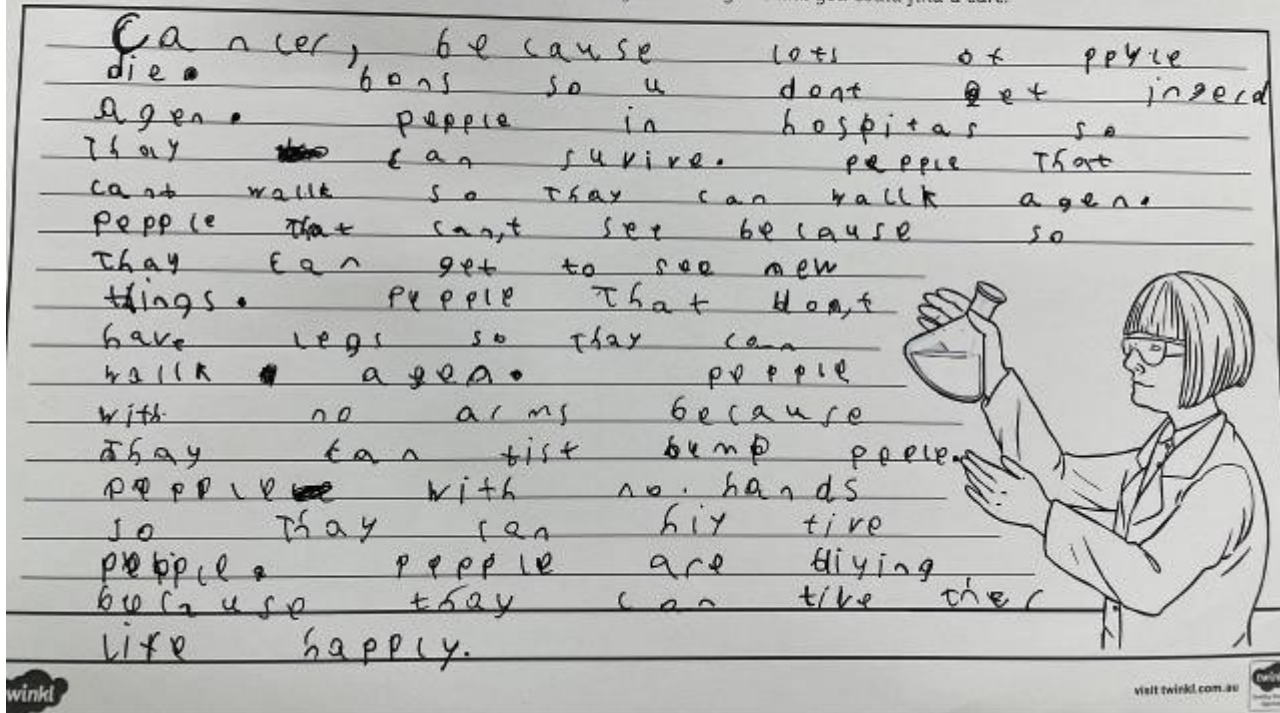 Cancer, because lots of pepple
die. bons so u dont get ingerd
agen. pepple in hospitas so
Thay can survive. pepple That
cant wallk so Thay can wallk agen.
pepple That can,t see because so
Thay can get to see new
things. pepple That don,t
have legs so Thay can
wallk agen. pepple
with no arms because
Thay can fist bump peple.
pepple with no hands
so Thay can hiy five
pepple. pepple are diying
because thay can live ther
life happly.
twinkl
visit twinkl.com.au